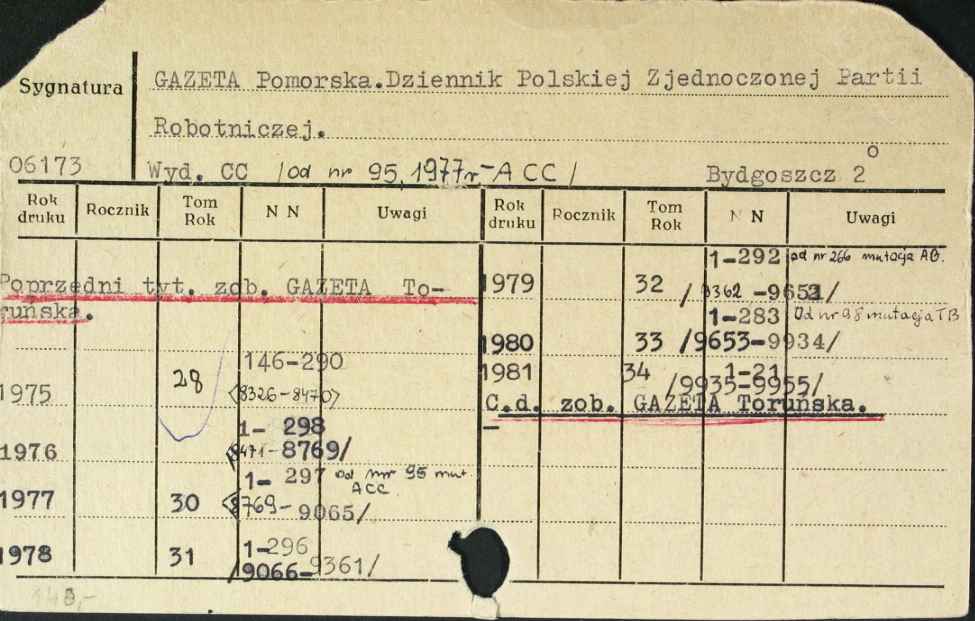 Sygnatura
GAZETA Pomorska.Dziennik Polskiej Zjednoczonej Partii
Robotniczej.
06173
Wyd. CC /od nr 95, 1977r-A CC / Bydgoszcz 2°
Rok druku Rocznik Tom Rok N N Uwagi
Poprzedni tyt. zob. GAZETA To-
ruńska.
1975 28 146-290
<8326-8470>
1976 1- 298
8471-8769/
1977 30 1- 297 od nr 95 mut. ACC
<8769-9065/
1978 31 1-296
/9066-9361/
Rok druku Rocznik Tom Rok N N Uwagi
1979 32 1-292 od nr 266 mutacja AB.
/9362-9653/
1980 33 1-283 Od nr 98 mutacja TB
/9653-9934/
1981 34 1-21
/9935-9955/
C.d. zob. GAZETA Toruńska.